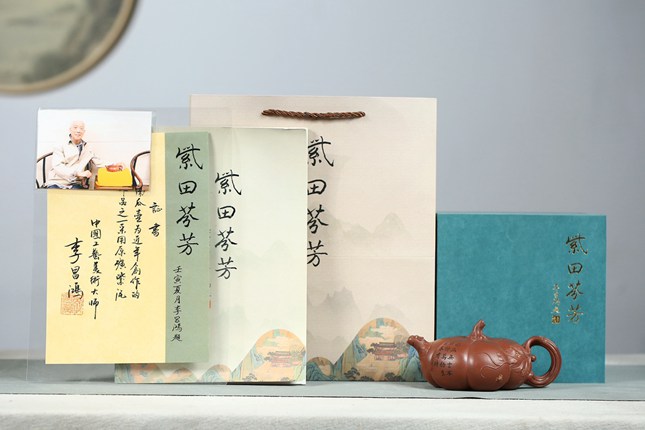 証書
瓜壶为近年创作的
品之一采用原礦紫泥
中國工艺美術大师
李昌鴻
紫田芬芳
壬寅夏月李昌鴻题
紫田芬芳
紫田芬芳
紫田芬芳